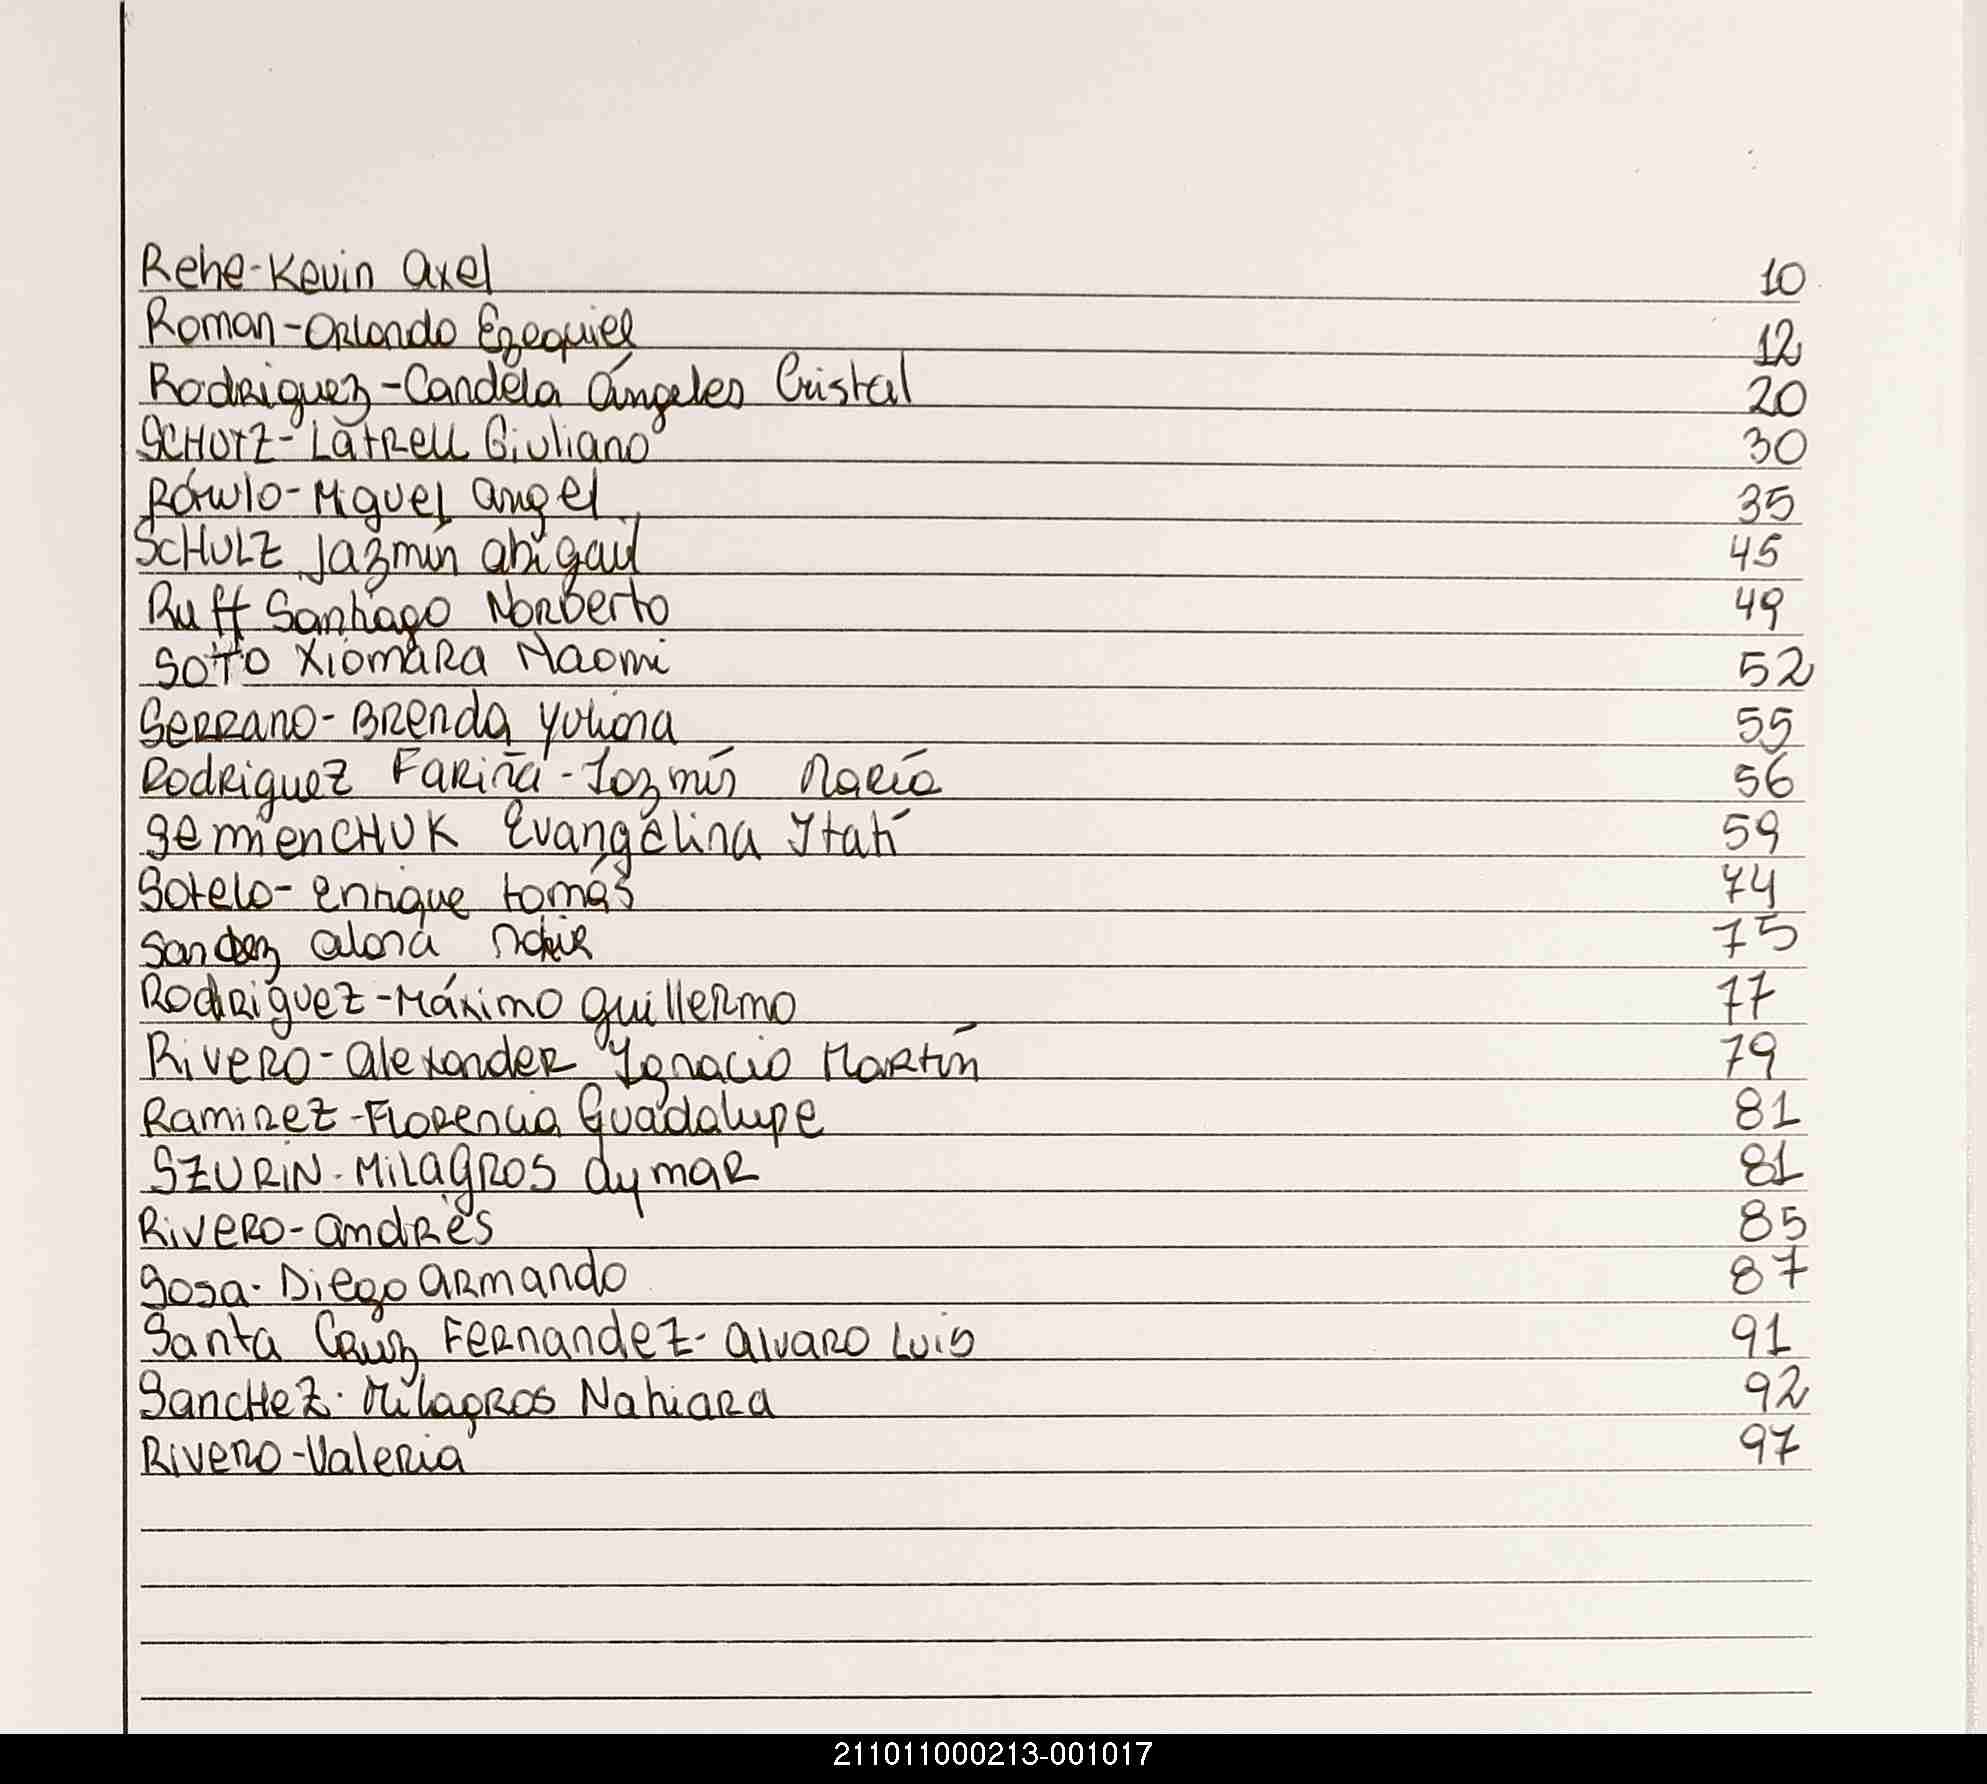 Rehe-Kevin Axel 10
Roman-Orlando Ezequiel 12
Rodriguez-Candela Ángeles Cristal 20
SCHUTZ-Latrell Giuliano 30
Rómulo-Miguel Angel 35
SCHULZ Jazmín Abigail 45
Ruff Santiago Norberto 49
Sotto Xiomara Naomi 52
Serrano-Brenda Yuliana 55
Rodriguez Fariña-Jazmín María 56
SemienCHUK Evangelina Itatí 59
Sotelo-Enrique Tomás 74
75
Rodriguez-Máximo Guillermo 77
Rivero-Alexander Ignacio Martín 79
Ramirez-Florencia Guadalupe 81
SZURIN-Milagros Aymar 81
Rivero-Andrés 85
Sosa-Diego Armando 87
Santa Cruz Fernandez-Alvaro Luis 91
Sanchez-Milagros Nahiara 92
Rivero-Valeria 97
211011000213-001017